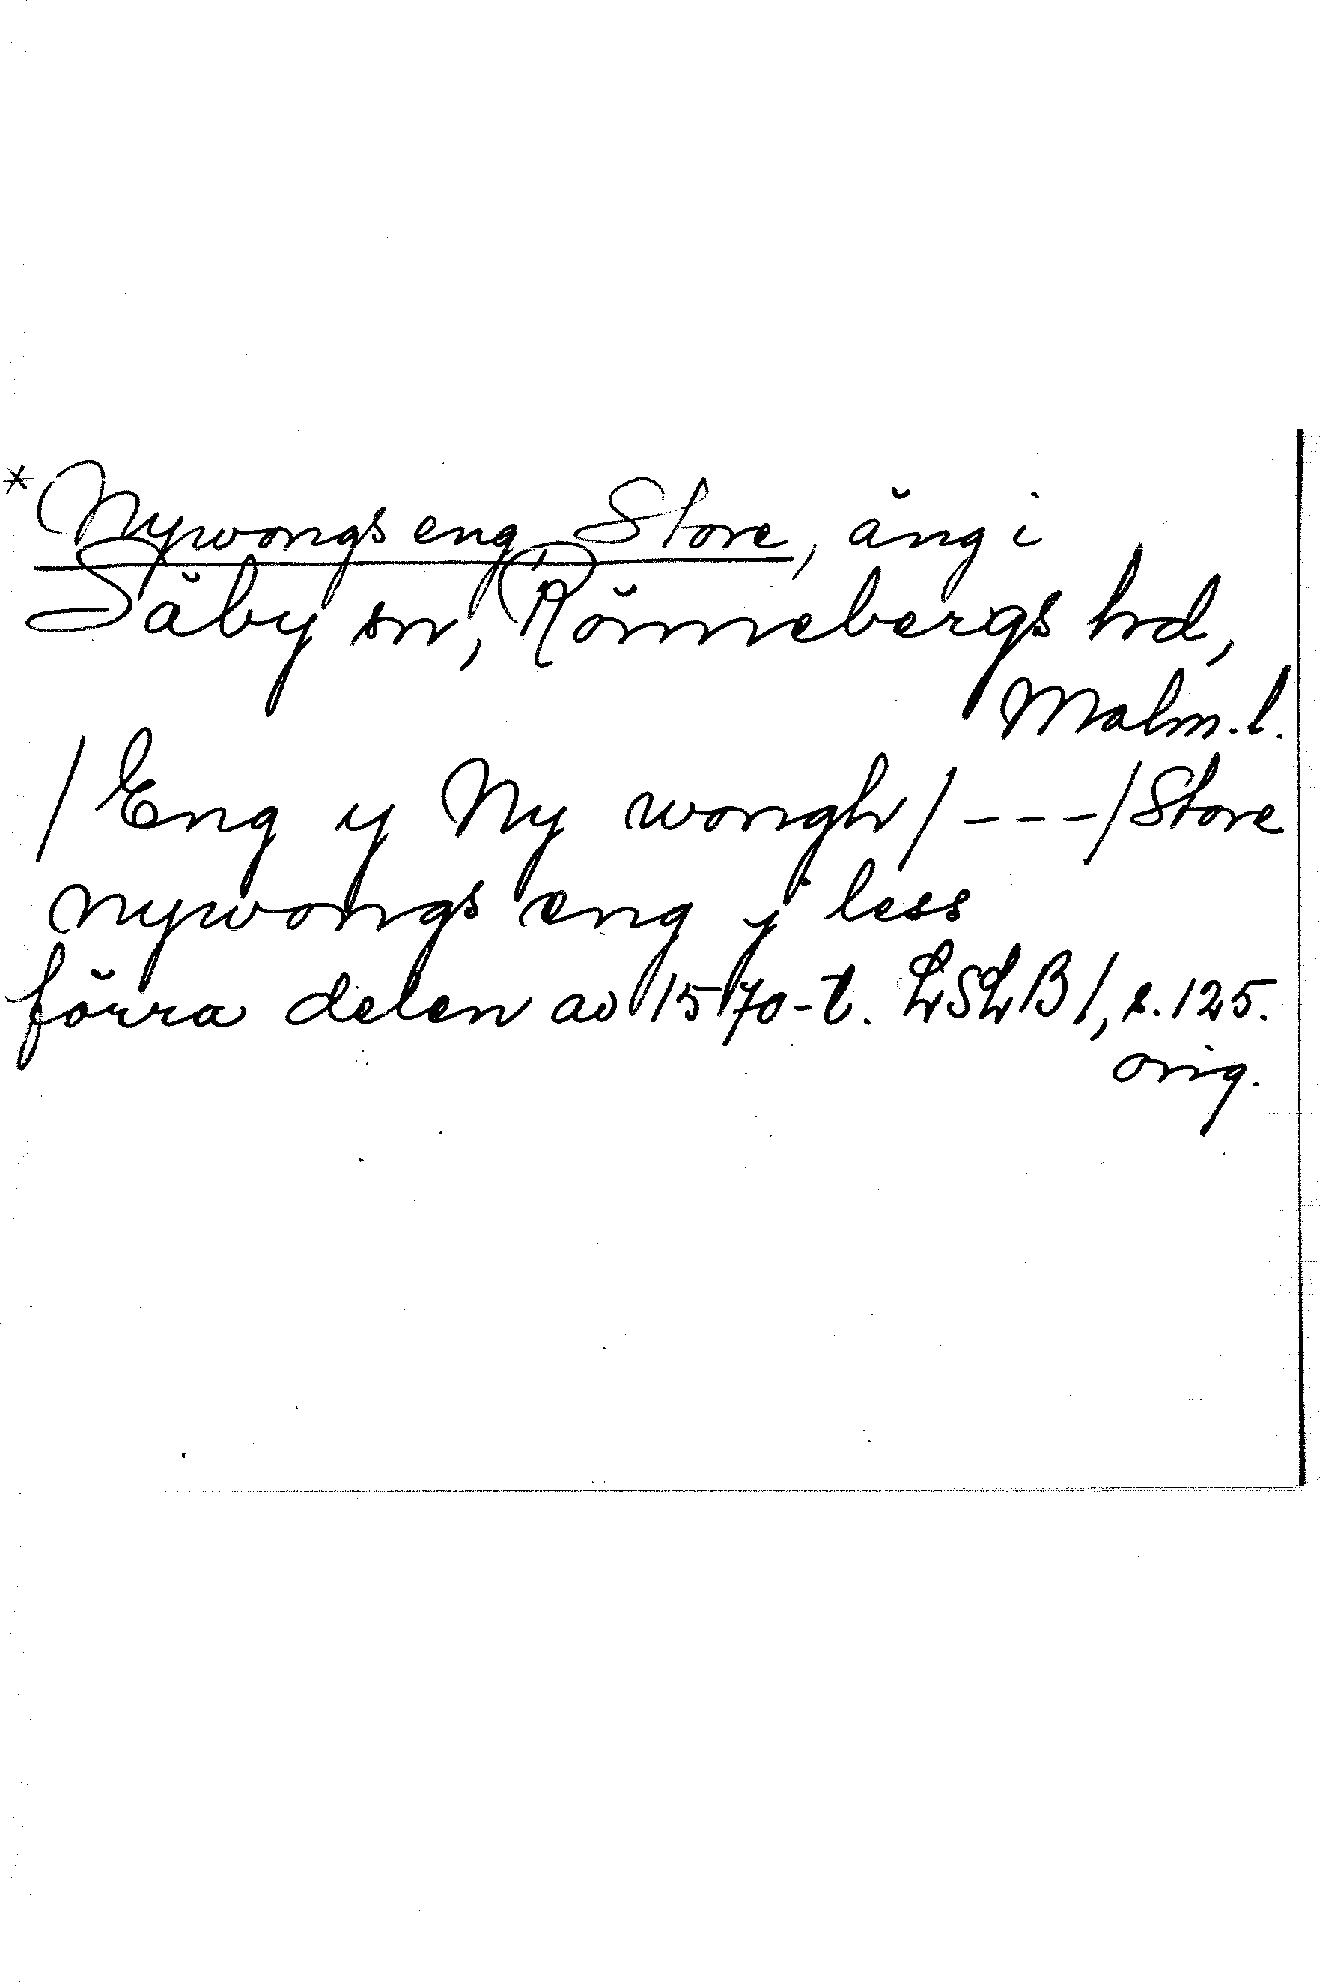 *Nywongs eng, Store, äng i
Säby sn, Rönnebergs hd,
Malm. l.
/Eng y Ny wongh/ - - - /Store
nywongs eng j less
förra delen av 1570-t. LSLB 1, s. 125.
orig.